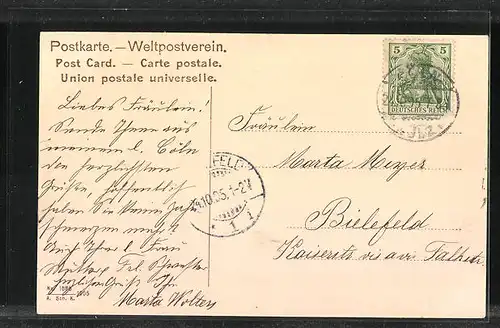 Postkarte. — Weltpostverein.
Post Card. — Carte postale.
Union postale universelle.
Liebes Fräulein!
Sende Ihnen aus
meinem l. Cöln
den herzlichsten
Grüße, hoffentlich
haben Sie kein Zahn
schmerzen mehr?
Auch Ihrer l. Frau
Mutter, Frl.
Marta Wolters
Fräulein
Marta Meyer
Bielefeld
Kaiserstr. vis a vis
5 5
DEUTSCHES REICH
FELD
10.05. 1-2
1 i
A. Sch. K.